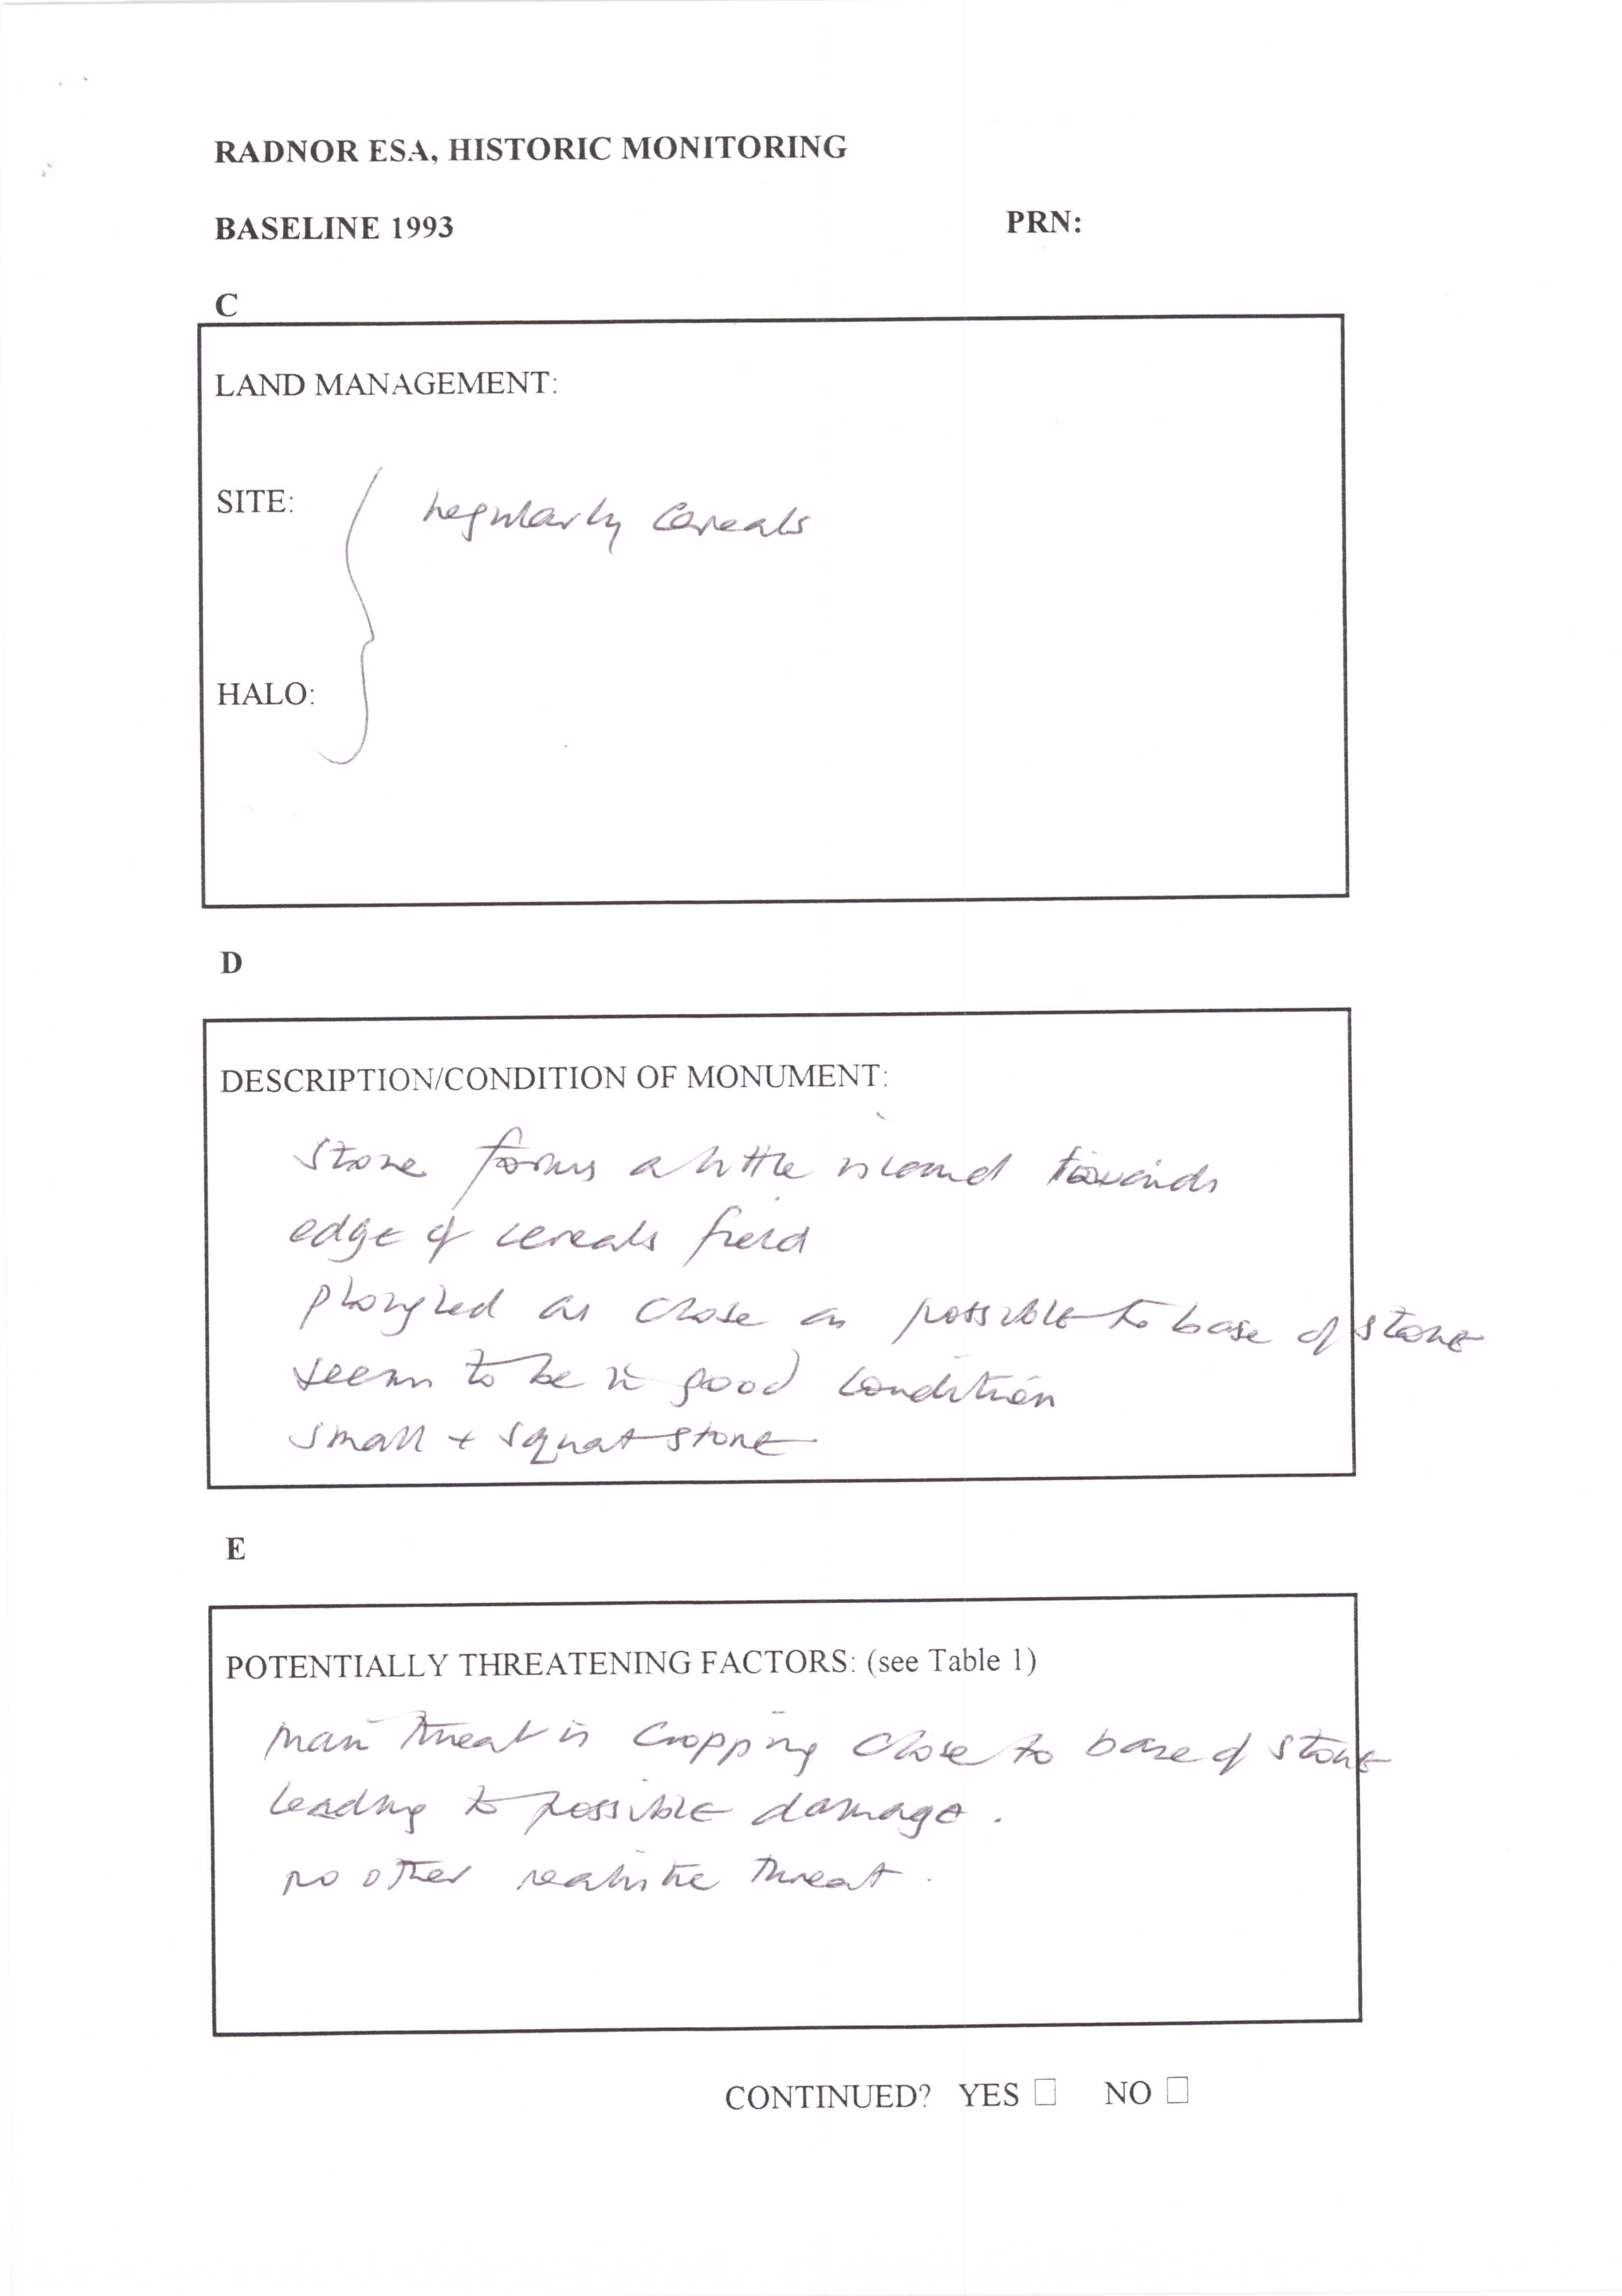 RADNOR ESA, HISTORIC MONITORING
BASELINE 1993 PRN:
C
LAND MANAGEMENT:
SITE: regularly cereals
HALO:
D
DESCRIPTION/CONDITION OF MONUMENT:
stone forms a little island towards
edge of cereals field
ploughed as close as possible to base of stone
seems to be in good condition
small + squat stone
E
POTENTIALLY THREATENING FACTORS: (see Table 1)
main threat is cropping close to base of stone
leading to possible damage.
no other realistic threat.
CONTINUED? YES □ NO □